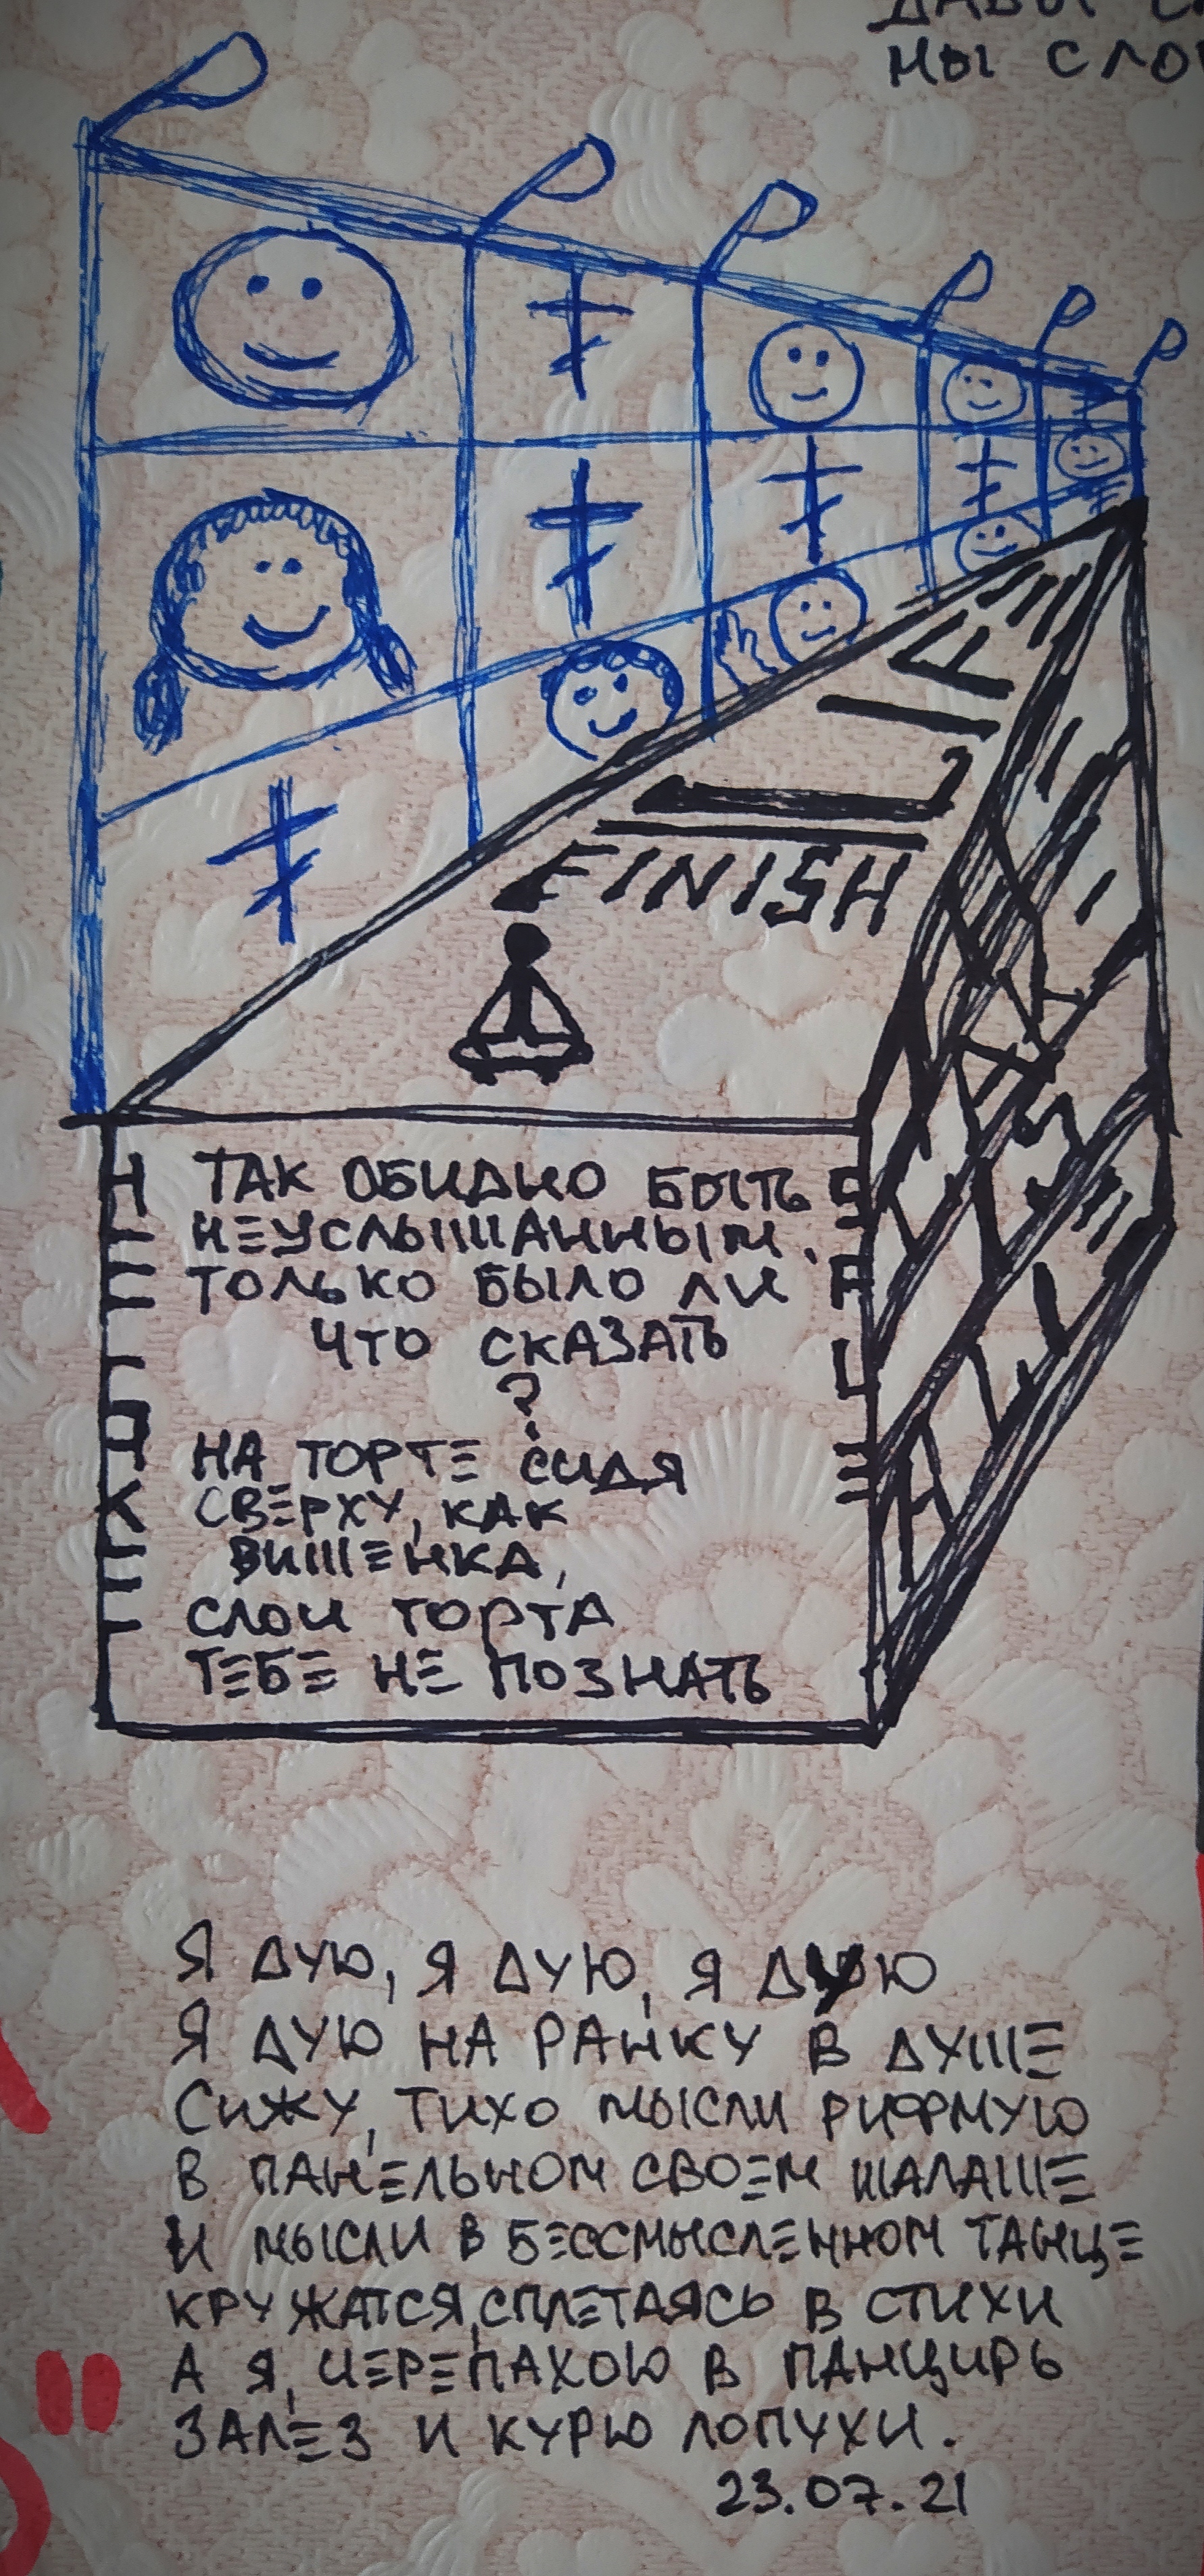 МЫ
FINISH
ТАК ОБИДНО БЫТЬ
НЕУСЛЫШАННЫМ.
ТОЛЬКО БЫЛО ЛИ
ЧТО СКАЗАТЬ
?
НА ТОРТЕ СИДЯ
СВЕРХУ, КАК
ВИШЕНКА,
СЛОИ ТОРТА
ТЕБЕ НЕ ПОЗНАТЬ
Я ДУЮ, Я ДУЮ, Я ДУЮ
Я ДУЮ НА РАНКУ В ДУШЕ
СИЖУ, ТИХО МЫСЛИ РИФМУЮ
В ПАНЕЛЬНОМ СВОЕМ ШАЛАШЕ
И МЫСЛИ В БЕССМЫСЛЕННОМ ТАНЦЕ
КРУЖАТСЯ, СПЛЕТАЯСЬ В СТИХИ
А Я, ЧЕРЕПАХОЮ В ПАНЦИРЬ
ЗАЛЕЗ И КУРЮ ЛОПУХИ.
23.07.21